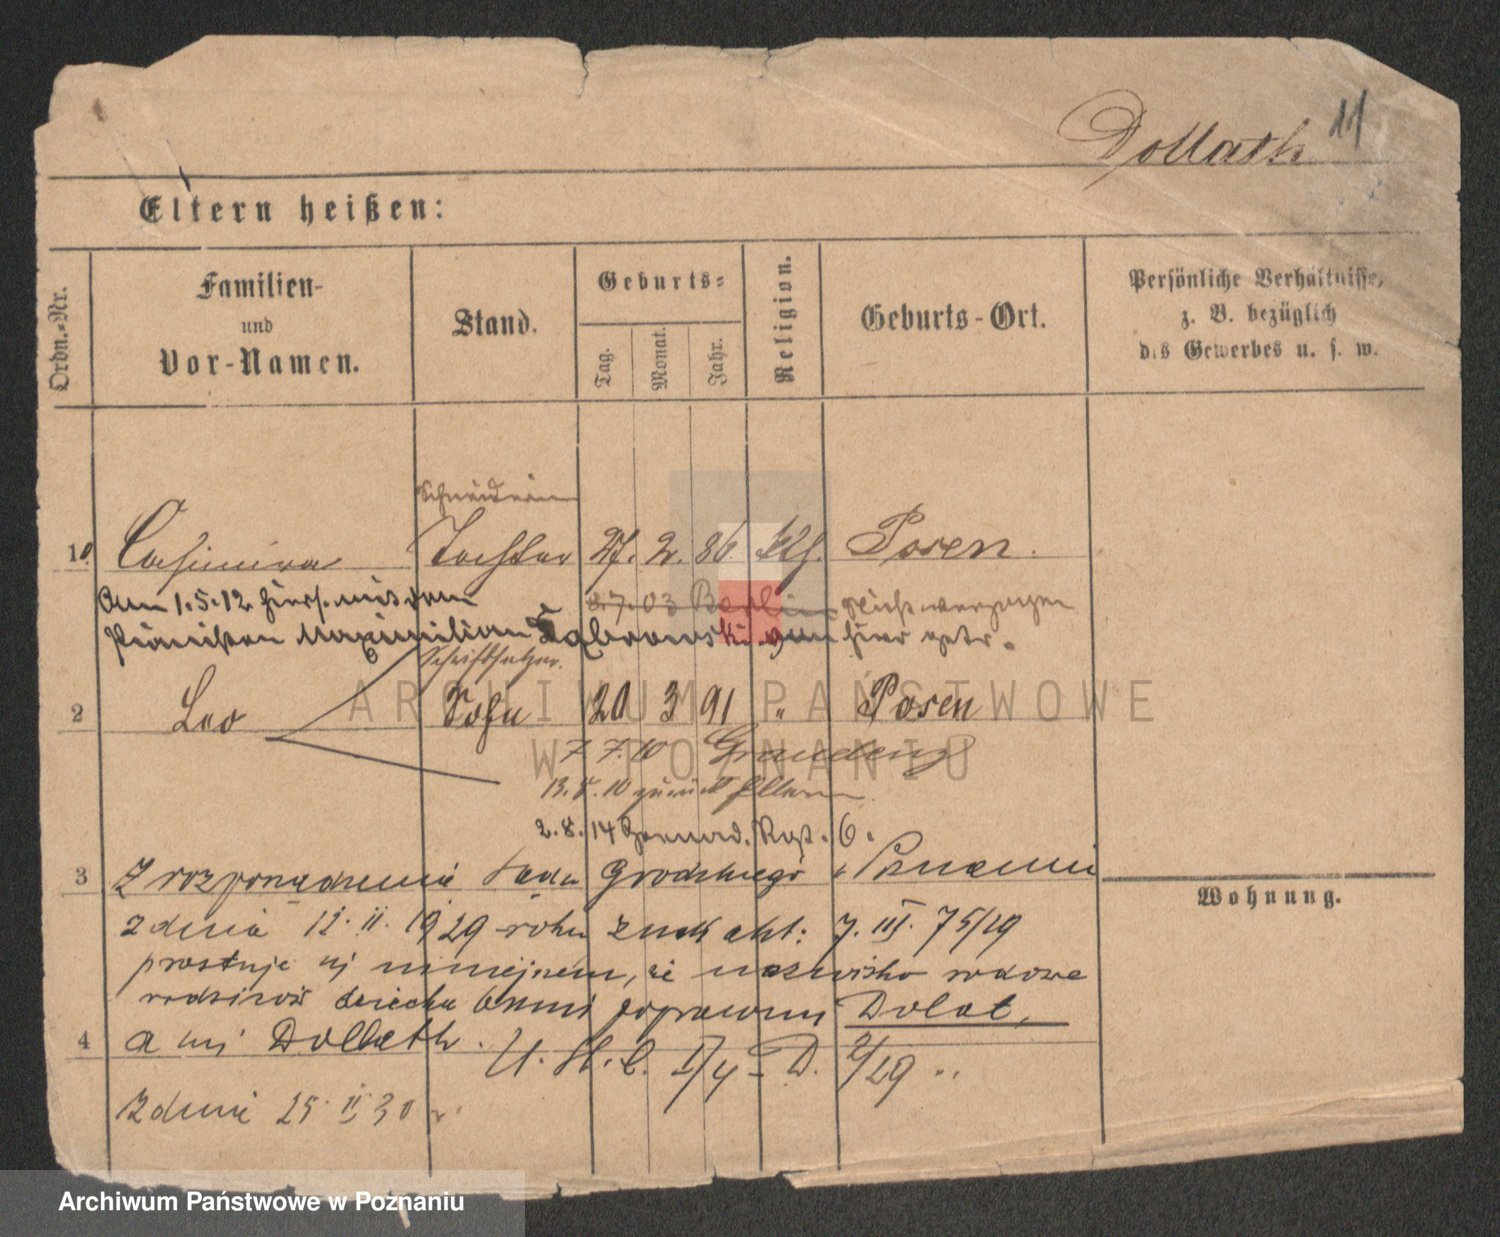 Dollath 11
Eltern heißen:
Ordn.=Nr.
Familien- und Vor-Namen.
Stand.
Geburts=
Tag.
Monat.
Jahr.
Religion.
Geburts-Ort.
Persönliche Verhältnisse,
z. B. bezüglich
des Gewerbes u. s. w.
Schneiderin
1 Casimira Tochter 27. 2. 86 kth. Posen.
8.7.03 Berlin nicht verzogen
Am 1.5.12 hiers. mit dem
Maximilian Dąbrowski von hier getr.
Schriftsetzer.
2 Leo Sohn 20 3 91 " Posen
7 7.10 Graudenz
13.8.10 zurück Eltern
2.8.14 Grenad. Rgt. 6.
3 Z rozporządzenia Sądu Grodzkiego w Poznaniu
z dnia 12. II. 1929 roku znak akt: 7. III. 75/29
prostuje się niniejszem, że nazwisko rodowe
rodziców dziecka brzmi poprawnie Dolat,
4 a nie Dollath.
U. St. C. I/4 - D. 2/29
z dnia 25 II 30 r.
Wohnung.
ARCHIWUM PAŃSTWOWE
W POZNANIU
Archiwum Państwowe w Poznaniu